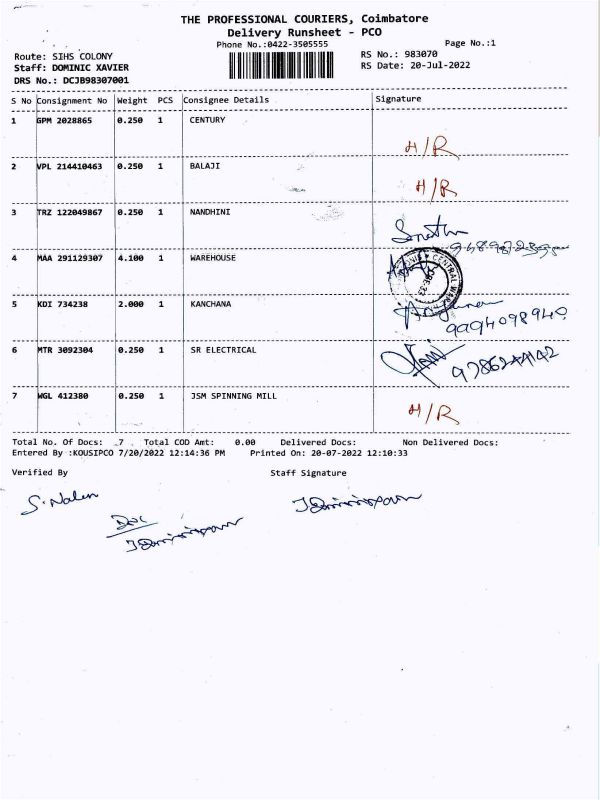 THE PROFESSIONAL COURIERS, Coimbatore
Delivery Runsheet - PCO
Phone No.:0422-3505555 Page No.:1
Route: SIHS COLONY RS No.: 983070
Staff: DOMINIC XAVIER RS Date: 20-Jul-2022
DRS No.: DCJB98307001
S No Consignment No Weight PCS Consignee Details Signature
1 GPM 2028865 0.250 1 CENTURY
H/R
2 VPL 214410463 0.250 1 BALAJI
H/R
3 TRZ 122049867 0.250 1 NANDHINI
4 MAA 291129307 4.100 1 WAREHOUSE
CENTRAL
5 KDI 734238 2.000 1 KANCHANA
9994098940
6 MTR 3092304 0.250 1 SR ELECTRICAL
7 WGL 412380 0.250 1 JSM SPINNING MILL
H/R
Total No. Of Docs: 7 Total COD Amt: 0.00 Delivered Docs: Non Delivered Docs:
Entered By :KOUSIPCO 7/20/2022 12:14:36 PM Printed On: 20-07-2022 12:10:33
Verified By Staff Signature
S. Nalen